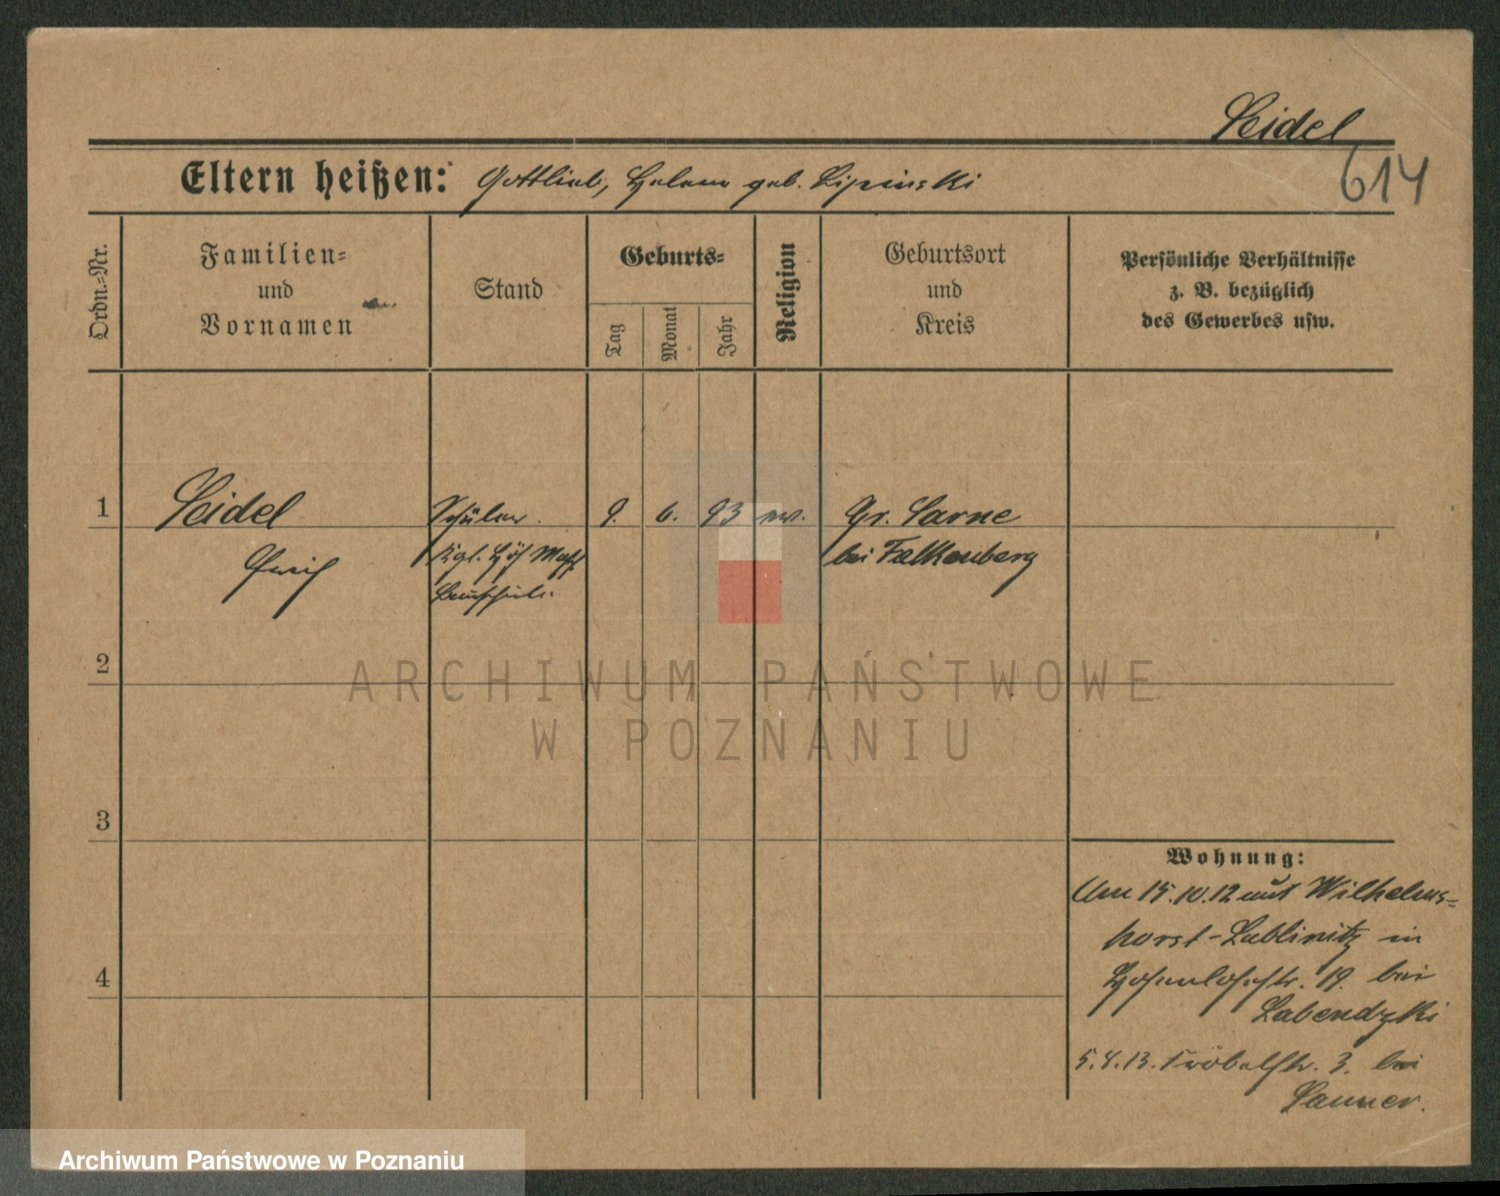 Seidel
614
Eltern heißen: Gottlieb, Helene geb. Lipinski
Ordn.-Nr.
Familien-
und
Vornamen
Stand
Geburts-
Tag
Monat
Jahr
Religion
Geburtsort
und
Kreis
Persönliche Verhältnisse
z. B. bezüglich
des Gewerbes usw.
1 Seidel Schüler. 9. 6. 93 ev. Gr. Sarne
Erich Kgl. Höh. Masch. bei Falkenberg
Bauschule.
2
3
4
Wohnung:
Am 15.10.12 aus Wilhelms-
horst-Lublinitz in
Hohenlohestr. 19. bei
Labendzki
5.4.13. Fröbelstr. 3. bei
ARCHIWUM PAŃSTWOWE
W POZNANIU
Archiwum Państwowe w Poznaniu